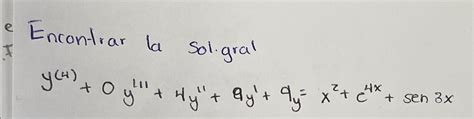 e Encontrar la Sol.gral
I
y⁽⁴⁾ + 0 y''' + 4y'' + 9y' + 9y = x² + e⁴ˣ + sen 3x